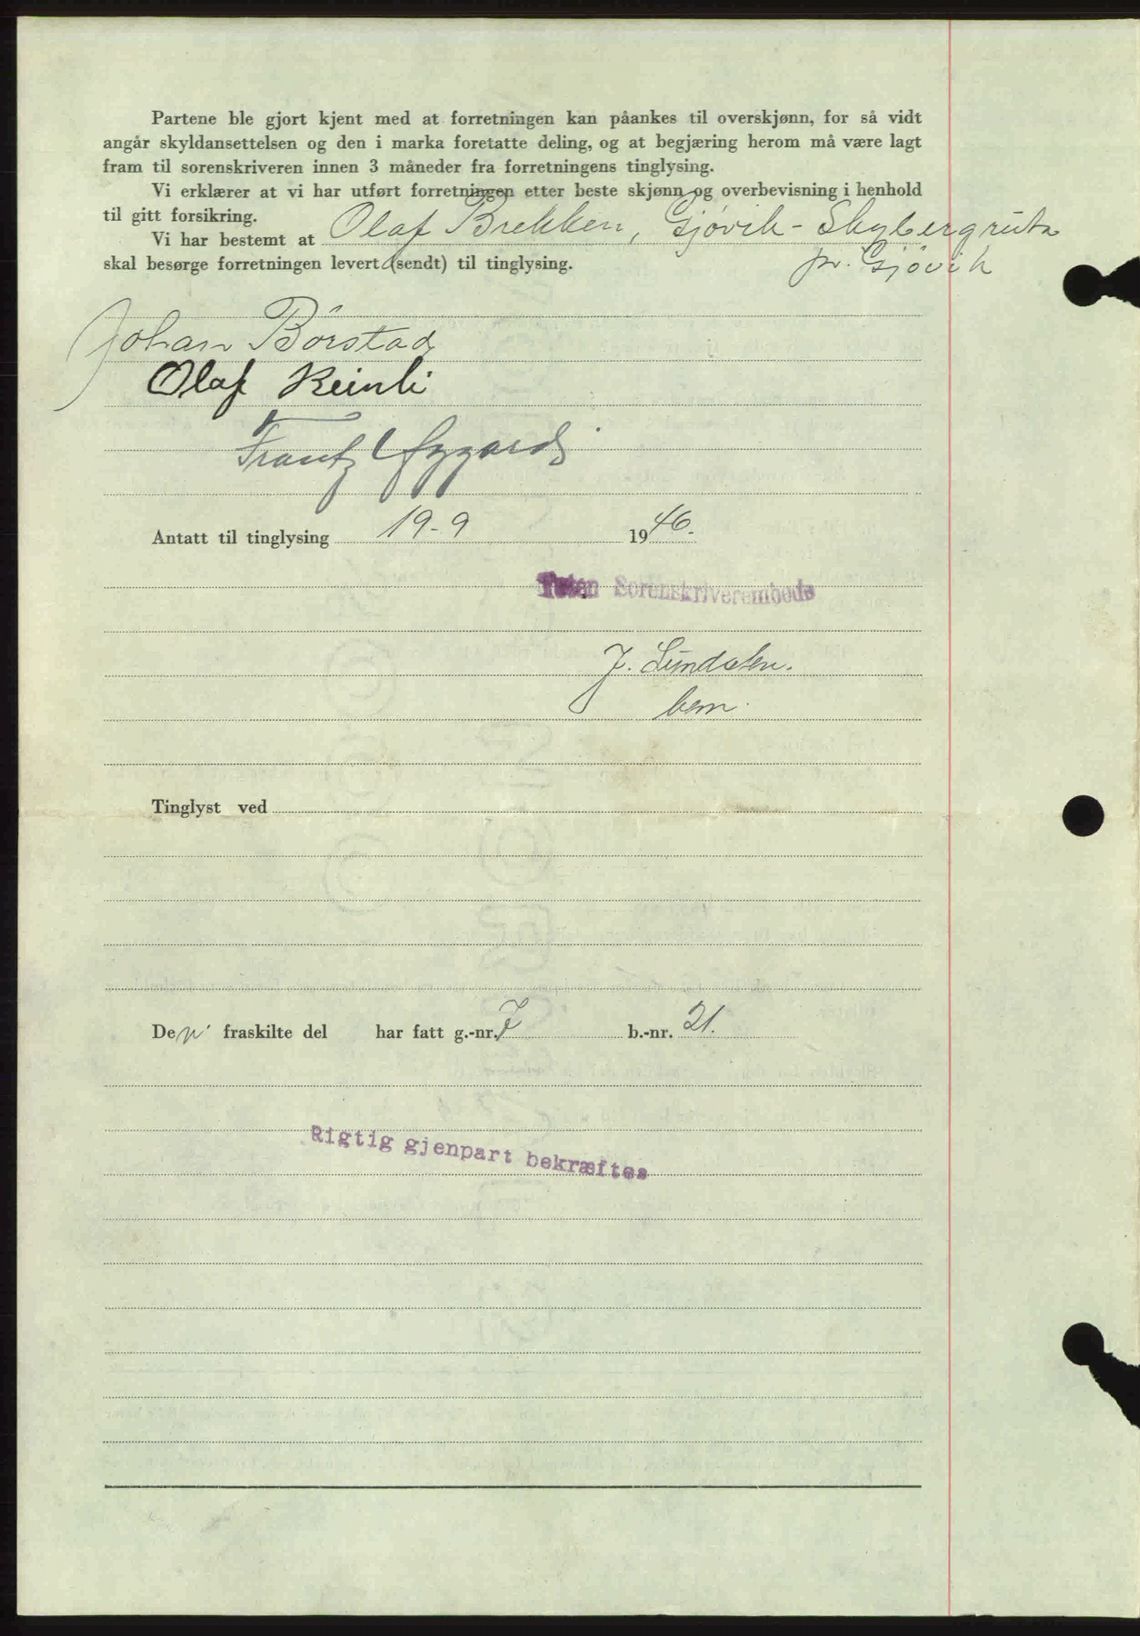 Partene ble gjort kjent med at forretningen kan påankes til overskjønn, for så vidt
angår skyldansettelsen og den i marka foretatte deling, og at begjæring herom må være lagt
fram til sorenskriveren innen 3 måneder fra forretningens tinglysing.
Vi erklærer at vi har utført forretningen etter beste skjønn og overbevisning i henhold
til gitt forsikring.
Vi har bestemt at Olaf Brekken, Gjøvik - Skybergruta
skal besørge forretningen levert (sendt) til tinglysing. pr. Gjøvik
Johan Börstad
Olaf Reinli
Frantz
Antatt til tinglysing 19-9 1946.
Toten Sorenskriverembede
J. Lundsten.
bem.
Tinglyst ved
Den fraskilte del har fatt g.-nr. 7 b.-nr. 21.
Rigtig gjenpart bekræftes